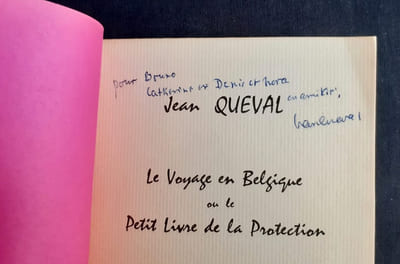 pour Bruno
Catherine et Denis et Nora
Jean QUEVAL en amitié,
Jean Queval
Le Voyage en Belgique
ou le
Petit Livre de la Protection